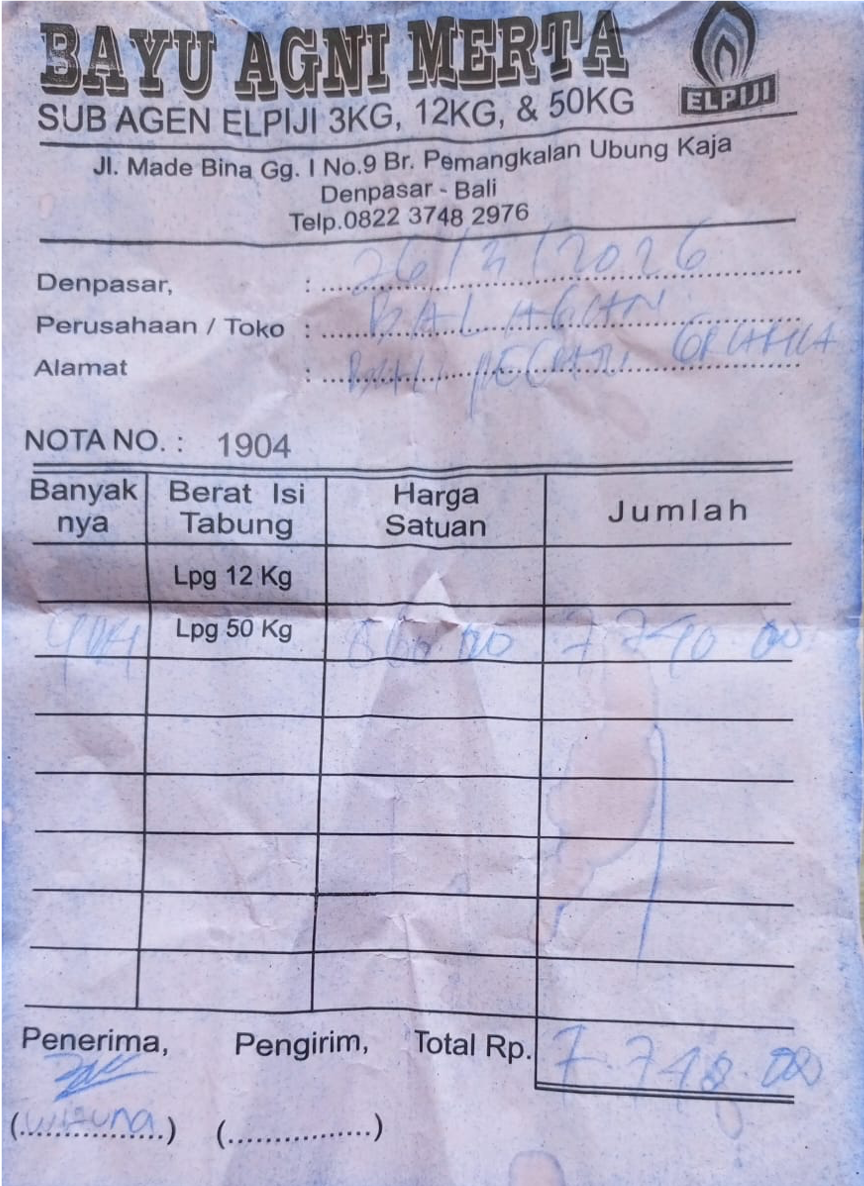 BAYU AGNI MERTA
ELPIJI
SUB AGEN ELPIJI 3KG, 12KG, & 50KG
Jl. Made Bina Gg. I No.9 Br. Pemangkalan Ubung Kaja
Denpasar - Bali
Telp.0822 3748 2976
Denpasar, : 26/3/2026
Perusahaan / Toko : BALAGAN
Alamat :
NOTA NO. : 1904
Banyak nya Berat Isi Tabung Harga Satuan Jumlah
Lpg 12 Kg
Lpg 50 Kg 7 740 00
Penerima, Pengirim, Total Rp. 7.740.00
(...............) (................)